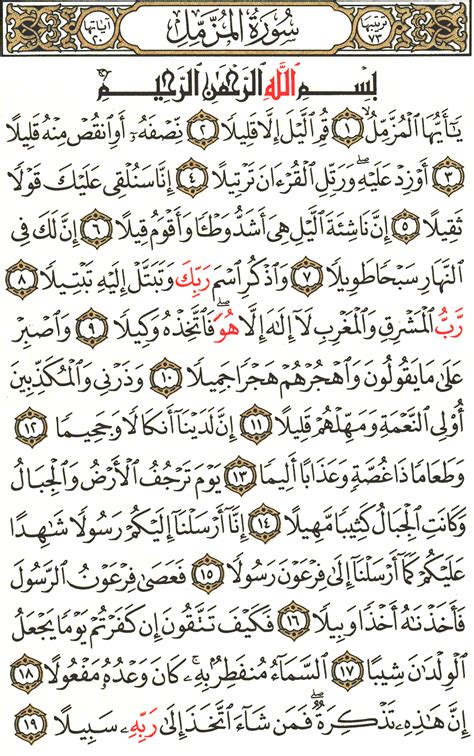 ترتيبها ٧٣ سُورَةُ المُزَّمِّلِ آياتها ٢٠
بِسْمِ اللَّهِ الرَّحْمَٰنِ الرَّحِيمِ
يَٰٓأَيُّهَا ٱلْمُزَّمِّلُ ١ قُمِ ٱلَّيْلَ إِلَّا قَلِيلًا ٢ نِّصْفَهُۥٓ أَوِ ٱنقُصْ مِنْهُ قَلِيلًا
٣ أَوْ زِدْ عَلَيْهِ وَرَتِّلِ ٱلْقُرْءَانَ تَرْتِيلًا ٤ إِنَّا سَنُلْقِى عَلَيْكَ قَوْلًا
ثَقِيلًا ٥ إِنَّ نَاشِئَةَ ٱلَّيْلِ هِىَ أَشَدُّ وَطْـًٔا وَأَقْوَمُ قِيلًا ٦ إِنَّ لَكَ فِى
ٱلنَّهَارِ سَبْحًا طَوِيلًا ٧ وَٱذْكُرِ ٱسْمَ رَبِّكَ وَتَبَتَّلْ إِلَيْهِ تَبْتِيلًا ٨
رَّبُّ ٱلْمَشْرِقِ وَٱلْمَغْرِبِ لَآ إِلَٰهَ إِلَّا هُوَ فَٱتَّخِذْهُ وَكِيلًا ٩ وَٱصْبِرْ
عَلَىٰ مَا يَقُولُونَ وَٱهْجُرْهُمْ هَجْرًا جَمِيلًا ١٠ وَذَرْنِى وَٱلْمُكَذِّبِينَ
أُو۟لِى ٱلنَّعْمَةِ وَمَهِّلْهُمْ قَلِيلًا ١١ إِنَّ لَدَيْنَآ أَنكَالًا وَجَحِيمًا ١٢
وَطَعَامًا ذَا غُصَّةٍ وَعَذَابًا أَلِيمًا ١٣ يَوْمَ تَرْجُفُ ٱلْأَرْضُ وَٱلْجِبَالُ
وَكَانَتِ ٱلْجِبَالُ كَثِيبًا مَّهِيلًا ١٤ إِنَّآ أَرْسَلْنَآ إِلَيْكُمْ رَسُولًا شَٰهِدًا
عَلَيْكُمْ كَمَآ أَرْسَلْنَآ إِلَىٰ فِرْعَوْنَ رَسُولًا ١٥ فَعَصَىٰ فِرْعَوْنُ ٱلرَّسُولَ
فَأَخَذْنَٰهُ أَخْذًا وَبِيلًا ١٦ فَكَيْفَ تَتَّقُونَ إِن كَفَرْتُمْ يَوْمًا يَجْعَلُ
ٱلْوِلْدَٰنَ شِيبًا ١٧ ٱلسَّمَآءُ مُنفَطِرٌۢ بِهِۦ ۚ كَانَ وَعْدُهُۥ مَفْعُولًا ١٨
إِنَّ هَٰذِهِۦ تَذْكِرَةٌ ۖ فَمَن شَآءَ ٱتَّخَذَ إِلَىٰ رَبِّهِۦ سَبِيلًا ١٩